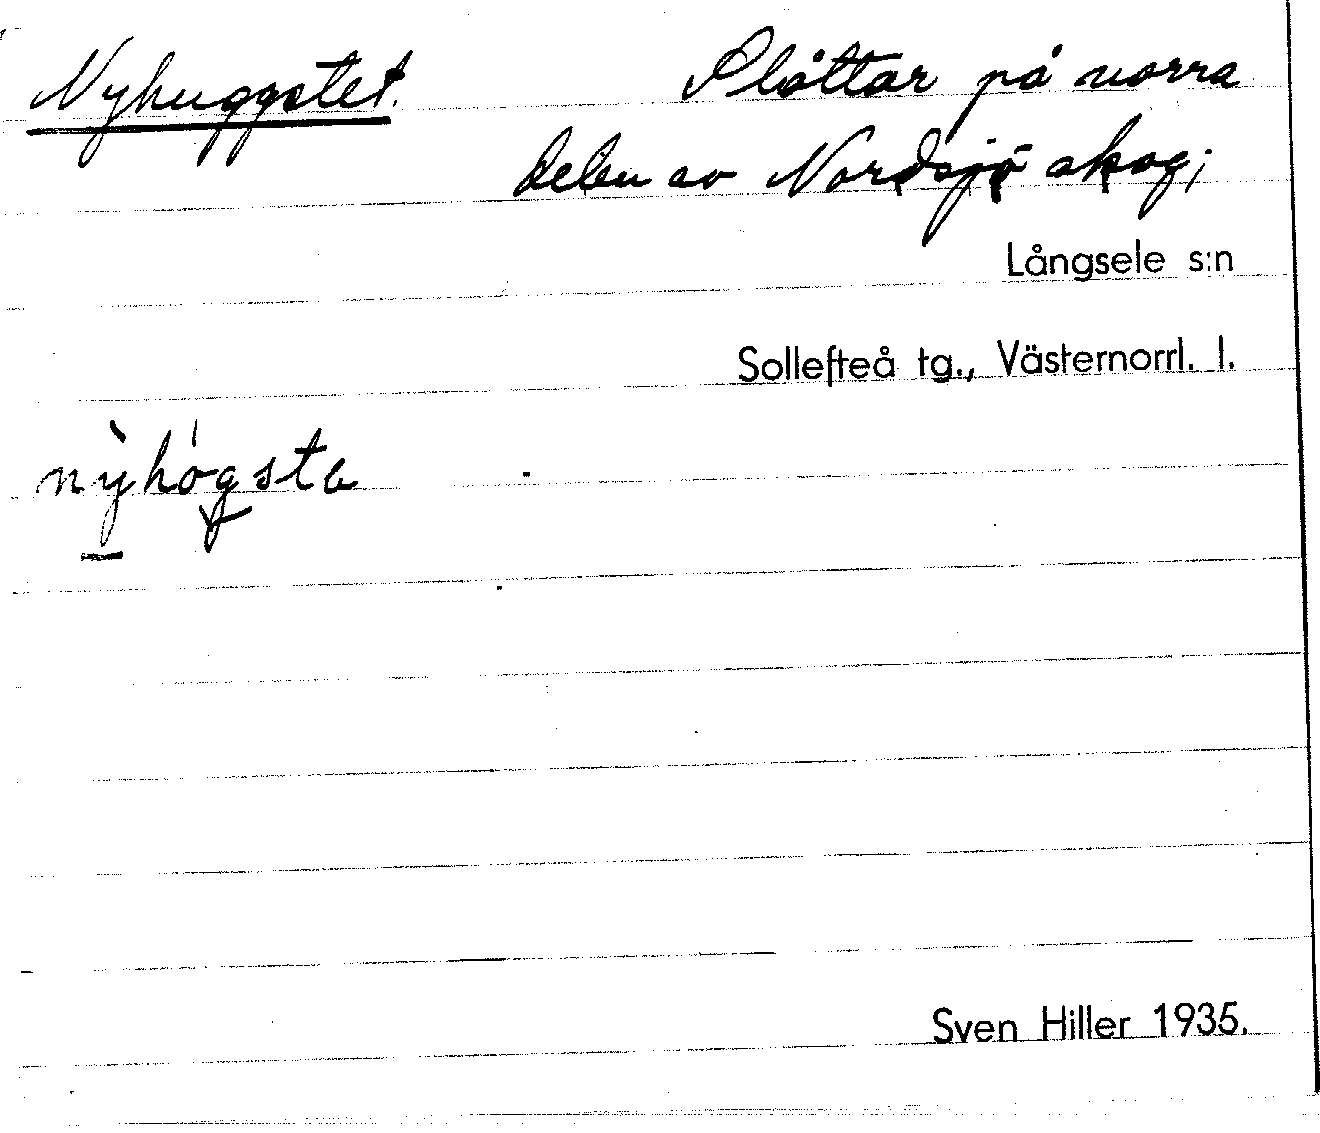 Nyhuggstet. Slåttar på norra
delen av Nordsjö skog;
Långsele s:n
Sollefteå tg., Västernorrl. l.
nỳhógsta
Sven Hiller 1935.